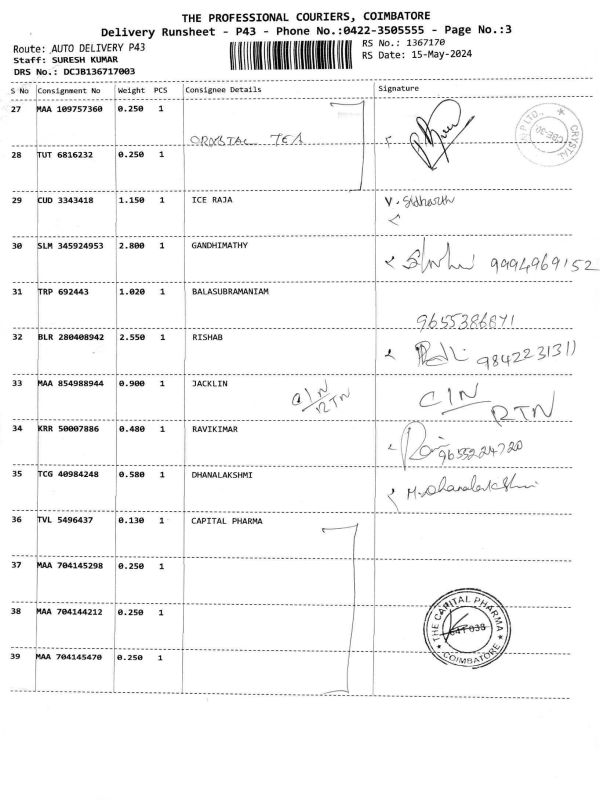 THE PROFESSIONAL COURIERS, COIMBATORE
Delivery Runsheet - P43 - Phone No.:0422-3505555 - Page No.:3
Route: AUTO DELIVERY P43
Staff: SURESH KUMAR
DRS No.: DCJB136717003
RS No.: 1367170
RS Date: 15-May-2024
S No Consignment No Weight PCS Consignee Details Signature
27 MAA 109757360 0.250 1
CRYSTAL TEA
CRYSTAL
28 TUT 6816232 0.250 1
29 CUD 3343418 1.150 1 ICE RAJA V. Sidharth
30 SLM 345924953 2.800 1 GANDHIMATHY 9994969152
31 TRP 692443 1.020 1 BALASUBRAMANIAM
9655386871
32 BLR 280408942 2.550 1 RISHAB 9842231311
33 MAA 854988944 0.900 1 JACKLIN CIN RTN CIN RTN
34 KRR 50007886 0.480 1 RAVIKIMAR 9655224720
35 TCG 40984248 0.580 1 DHANALAKSHMI M. Dhanalakshmi
36 TVL 5496437 0.130 1 CAPITAL PHARMA
37 MAA 704145298 0.250 1
38 MAA 704144212 0.250 1
THE CAPITAL PHARMA
COIMBATORE
39 MAA 704145470 0.250 1